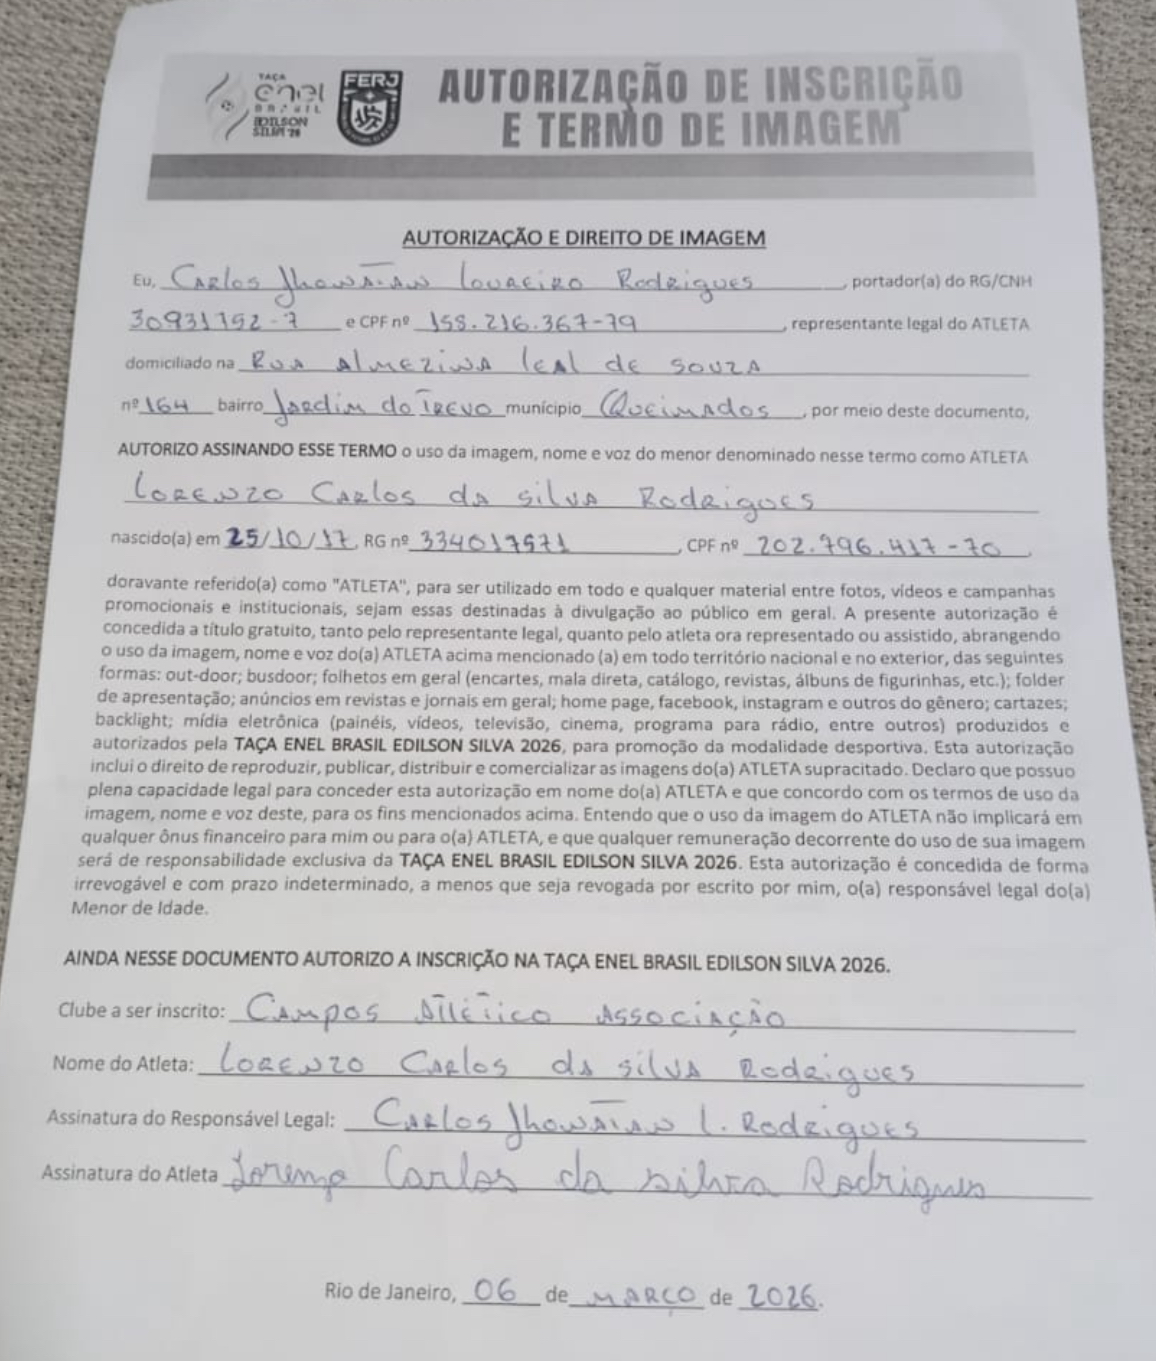 TAÇA
enel
BRASIL
EDILSON
SILVA'26
FERJ
AUTORIZAÇÃO DE INSCRIÇÃO
E TERMO DE IMAGEM
AUTORIZAÇÃO E DIREITO DE IMAGEM
Eu, Carlos Jhonatan Loureiro Rodrigues, portador(a) do RG/CNH
30931752-7 e CPF nº 158.216.367-79, representante legal do ATLETA
domiciliado na Rua Almezina Leal de Souza
nº 164 bairro Jardim do Trevo município Queimados, por meio deste documento,
AUTORIZO ASSINANDO ESSE TERMO o uso da imagem, nome e voz do menor denominado nesse termo como ATLETA
Lorenzo Carlos da Silva Rodrigues
nascido(a) em 25/10/17, RG nº 334017571, CPF nº 202.796.417-70
doravante referido(a) como "ATLETA", para ser utilizado em todo e qualquer material entre fotos, vídeos e campanhas
promocionais e institucionais, sejam essas destinadas à divulgação ao público em geral. A presente autorização é
concedida a título gratuito, tanto pelo representante legal, quanto pelo atleta ora representado ou assistido, abrangendo
o uso da imagem, nome e voz do(a) ATLETA acima mencionado (a) em todo território nacional e no exterior, das seguintes
formas: out-door; busdoor; folhetos em geral (encartes, mala direta, catálogo, revistas, álbuns de figurinhas, etc.); folder
de apresentação; anúncios em revistas e jornais em geral; home page, facebook, instagram e outros do gênero; cartazes;
backlight; mídia eletrônica (painéis, vídeos, televisão, cinema, programa para rádio, entre outros) produzidos e
autorizados pela TAÇA ENEL BRASIL EDILSON SILVA 2026, para promoção da modalidade desportiva. Esta autorização
inclui o direito de reproduzir, publicar, distribuir e comercializar as imagens do(a) ATLETA supracitado. Declaro que possuo
plena capacidade legal para conceder esta autorização em nome do(a) ATLETA e que concordo com os termos de uso da
imagem, nome e voz deste, para os fins mencionados acima. Entendo que o uso da imagem do ATLETA não implicará em
qualquer ônus financeiro para mim ou para o(a) ATLETA, e que qualquer remuneração decorrente do uso de sua imagem
será de responsabilidade exclusiva da TAÇA ENEL BRASIL EDILSON SILVA 2026. Esta autorização é concedida de forma
irrevogável e com prazo indeterminado, a menos que seja revogada por escrito por mim, o(a) responsável legal do(a)
Menor de Idade.
AINDA NESSE DOCUMENTO AUTORIZO A INSCRIÇÃO NA TAÇA ENEL BRASIL EDILSON SILVA 2026.
Clube a ser inscrito: Campos Atlético Associação
Nome do Atleta: Lorenzo Carlos da Silva Rodrigues
Assinatura do Responsável Legal: Carlos Jhonatan L. Rodrigues
Assinatura do Atleta Lorenzo Carlos da Silva Rodrigues
Rio de Janeiro, 06 de Março de 2026.